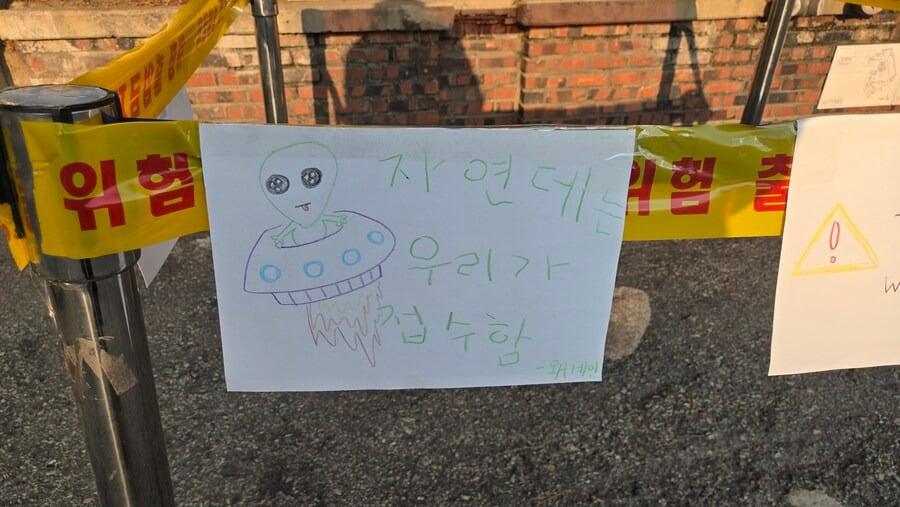 위험
자연데는
우리가
접수함
-외계인
위험 출
!
W